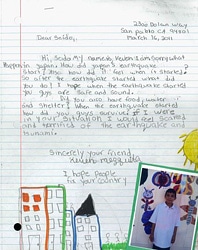 2300 Dolan Way
San pablo CA 94801
March 16, 2011
Dear Sadao,
Hi, my name is I am sorry what
Happen in japan. How did japan's earthquake
start? Also how did it feel when it started.
So after the earthquake started what did
you do? I hope when the earthquake started
you guys are safe and sound.
Did you also have food, water
and shelter? When the earthquake started
how did you guys survive? If I were
in your situation I would feel scared
and terrified of the earthquake and
tsunami.
Sincerely your friend,
I hope people
in your country